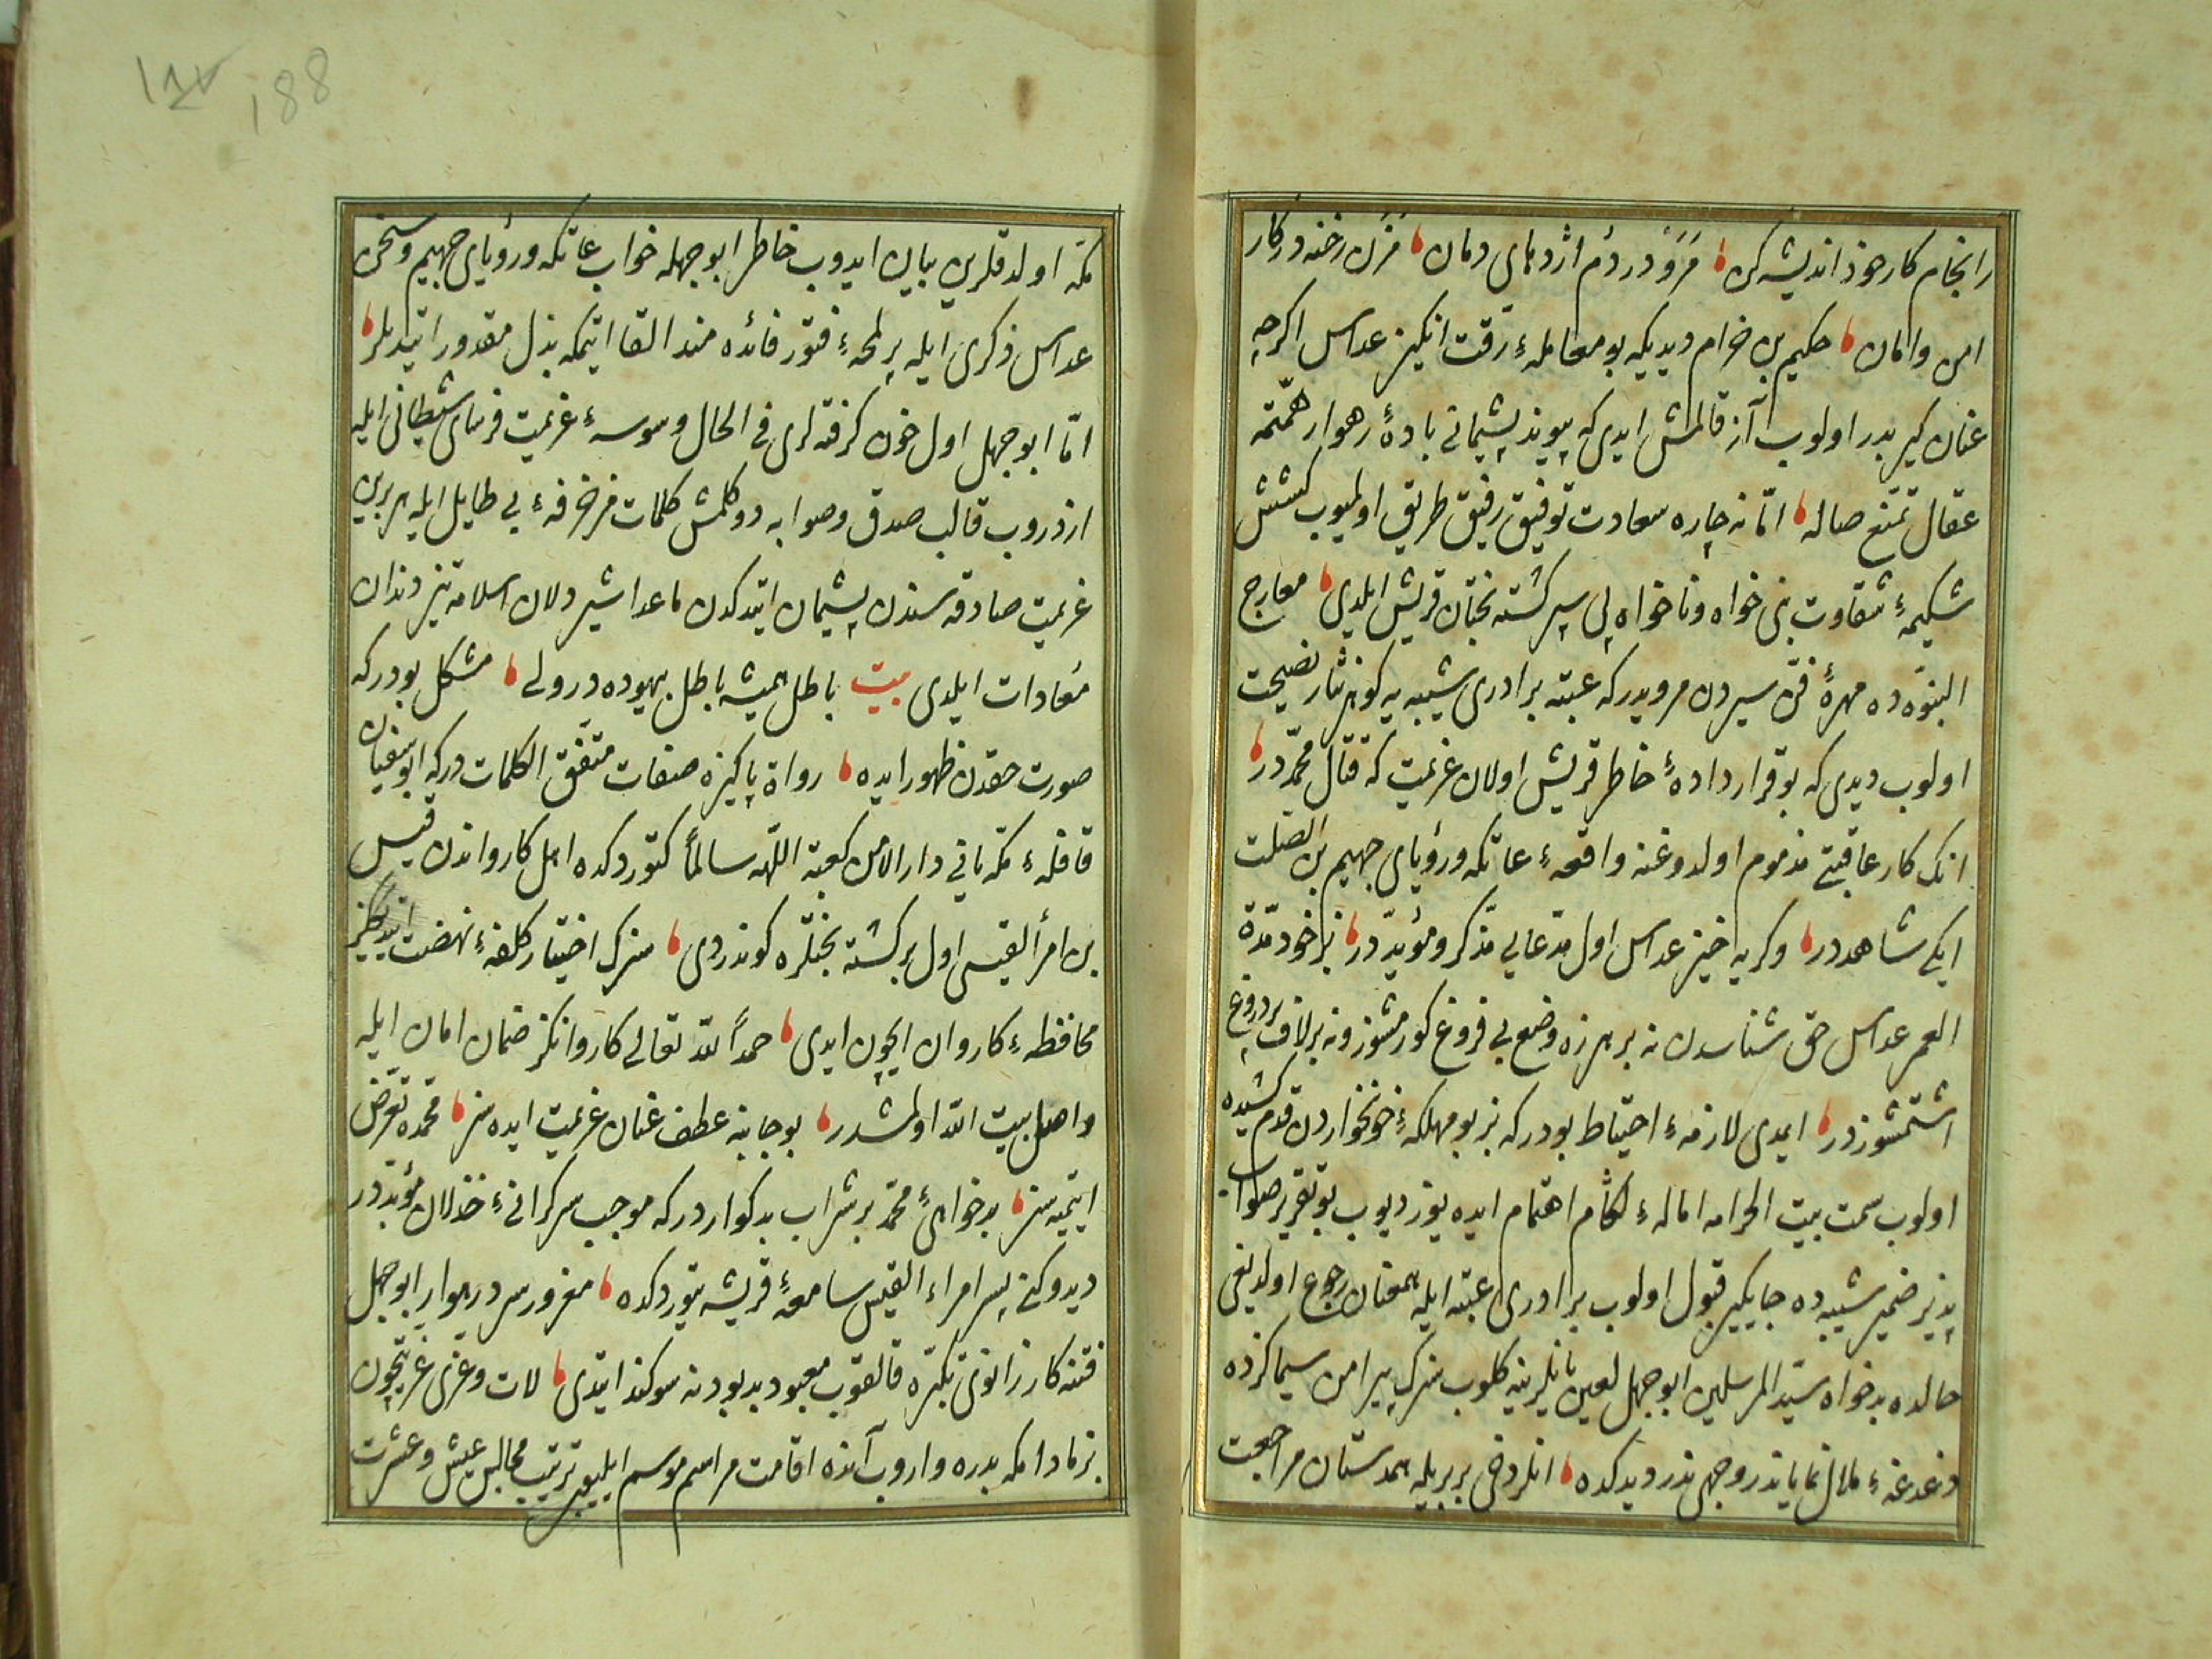 را نجام کار خود اندیشه کن مرو در دم اژدهای دمان مزن رخنه در کار
امن وامان حکیم بن خرام دیدیکه بو معامله ٔ رقت انکیز عداس اکرچه
عنان کیر بدر اولوب آز قالمش ایدی که پیوند پشیمانی باده ٔ رهوار همّتمه
عقال تمتع صاله امّا نه چاره سعادت توفیق رفیق طریق اولمیوب کشش
شکیمه ٔ شقاوت بنی خواه وناخواه پی سپر کشته بختان قریش ایلدی معارج
النبوّه ده مهره ٔ فن سیردن مرویدر که عتبه برادری شیبه یه کوهر نثار نصیحت
اولوب دیدی که بو قرار داده ٔ خاطر قریش اولان عزیمت که قتال محمّد در
انک کار عاقبتی مذموم اولدوغنه واقعه ٔ عاتکه ورؤیای جهیم بن الصّلت
ایکی شاهددر وکریه خیز عداس اول مدّعایی مذکر ومؤیّد در بز خود مدّة
العمر عداس حق شناسدن نه بر هرزه وضع بی فروغ کورمشوز ونه بر لاف پر دروغ
اشتمشوزدر ایمدی لازمه ٔ احتیاط بودر که بز بو مهلکه ٔ خونخواردن قدم کشیده
اولوب سمت بیت الحرامه اماله ٔ لکام اهتمام ایده یوز دیوب بو تقریر صواب
پذیر ضمیر شیبه ده جایکیر قبول اولوب برادری عتبه ایله همعنان رجوع اولدیغی
حالده بدخواه سیّد المرسلین ابوجهل لعین یانلرینه کلوب سزک پیرامن سیماکزده
دغدغه ٔ ملال نمایاندر وجهی ندر دیدکده انلر دخی بربریله همدستان مراجعت
مکّه اولدقلرین بیان ایدوب خاطر ابوجهله خواب عاتکه ورؤیای جهیم وسخن
عداس ذکری ایله بر لمحه ٔ فتور فائده مند القا ایتمکه بذل مقدور ایتدیلر
امّا ابوجهل اول خون کرفته لری فی الحال وسوسه ٔ عزیمت فرسای شیطانی ایله
ازدروب قالب صدق وصوابه دوکلمش کلمات مزخرفه ٔ بی طایل ایله هر برین
عزیمت صادقه سندن پشیمان ایتدکدن ماعدا شیر دلان اسلامه تیز دندان
معادات ایلدی بیت باطل همیشه باطل بیهوده در ولی مشکل بودر که
صورت حقدن ظهور ایده رواة پاکیزه صفات متّفق الکلمات در که ابوسفیان
قافله ٔ مکّه یانی دار الامن کعبة اللّهه سالماً کتوردکده اهل کارواندن قیس
بن امرأ القیسی اول برکشته بختلره کوندردی سزک اختیار کلفه ٔ نهضت ایتدیکز
محافظه ٔ کاروان ایچون ایدی حمداً للّه تعالی کاروانکز ضمان امان ایله
واصل بیت اللّه اولمشدر بو جانبه عطف عنان عزیمت ایده سز محمّده تعرّض
ایتمیه سز بدخواهی ٔ محمّد بر شراب بدکوار در که موجب سرکرانی ٔ خذلان مؤبّددر
دیدوکنی پسر امراء القیس سامعه ٔ قریشه یتوردکده مغرور سر در هوا ابوجهل
فتنه کار زانوی تکبّره قالقوب معبود بد بودنه سوکند ایتدی لات وعزی عزّتیچون
بز مادامکه بدره واروب آنده اقامت مراسم موسم ایلییوب ترتیب مجالس عیش وعشرت
١٨٧
188